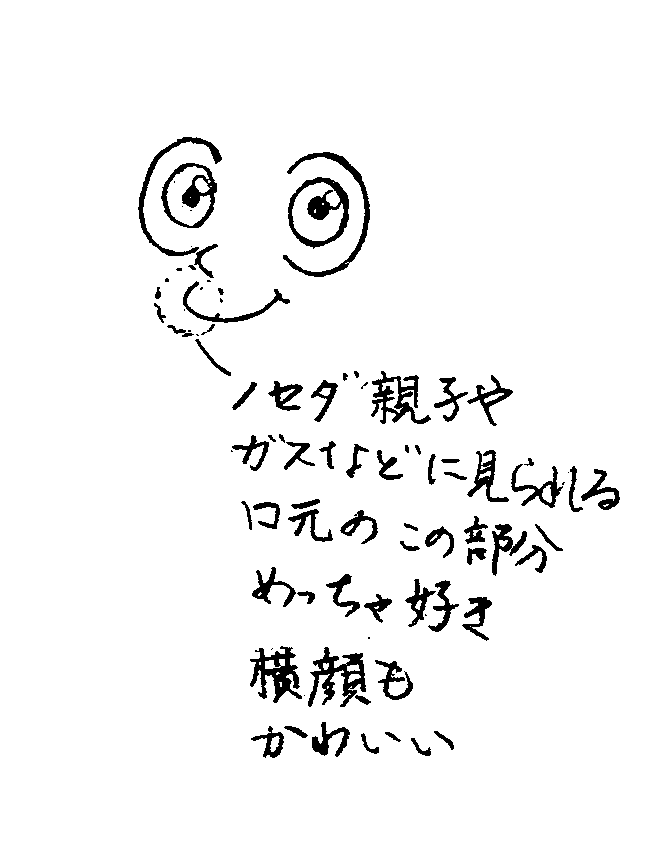 ノセダ親子や
ガスなどに見られる
口元のこの部分
めっちゃ好き
横顔も
かわいい